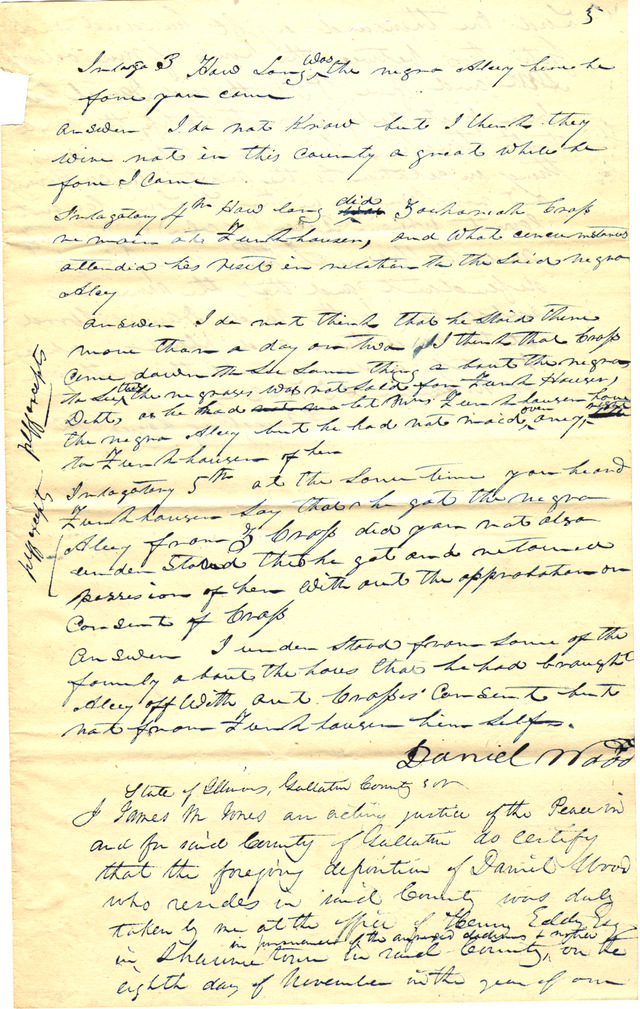 5
Intarga 3 How Long Was the negro Aley heire be
fore you came
answer I do not Know but I think they
wire not in this county a great while be
fore I came
Intagatory 4th How long did Zachariah Crop
remain at Funkhausen, and What circumstances
attendid his visit in relation to the said negro
Aley
answer I do not think that he Staid there
more than a day or two I think that Crop
came down to See Some thing a bout the negroes
to See the negroes was not Sold for Funk Houser,
Debt, as he had let Mrs Funkhauser have
the negro Aley but he had not maid over any
to Funkhausen of her
pltff excepts
Intagatory 5th at the Same time you heard
Funkhausen Say that he got the negro
Aley from Z Crop did you not also
under Stand that he got and retained
possesion of her With out the approbation or
Consent of Crop
pltff excepts
answer I under stood from Some of the
family a bout the hous that he had braught
Aley off With out Crops' Consent but
not from Funkhausen him Self.
Daniel Wood
State of Illinois, Gallatin County
I James M Jones an acting justice of the Peace in
and for said County of Gallatin do certify
that the foregoing deposition of Daniel Wood
who resides in said County was duly
taken by me at the office of Henry Eddy Esq
in pursuance of the annexed dedimus & notice
in Shawneetown in said County, on the
eighth day of November in the year of our